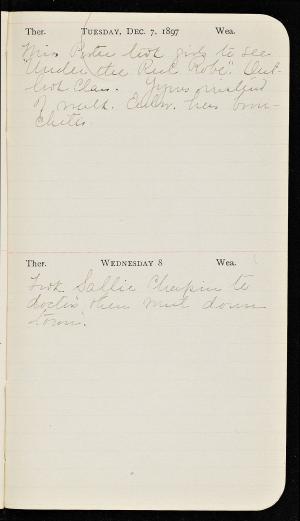 Ther. TUESDAY, DEC. 7, 1897 Wea.
Miss Porter took girls to see
"Under the Red Robe". Out-
look Class.
of milk. has bron-
chitis.
Ther. WEDNESDAY 8 Wea.
Took Sallie Chapin to
doctor's then went down
town.